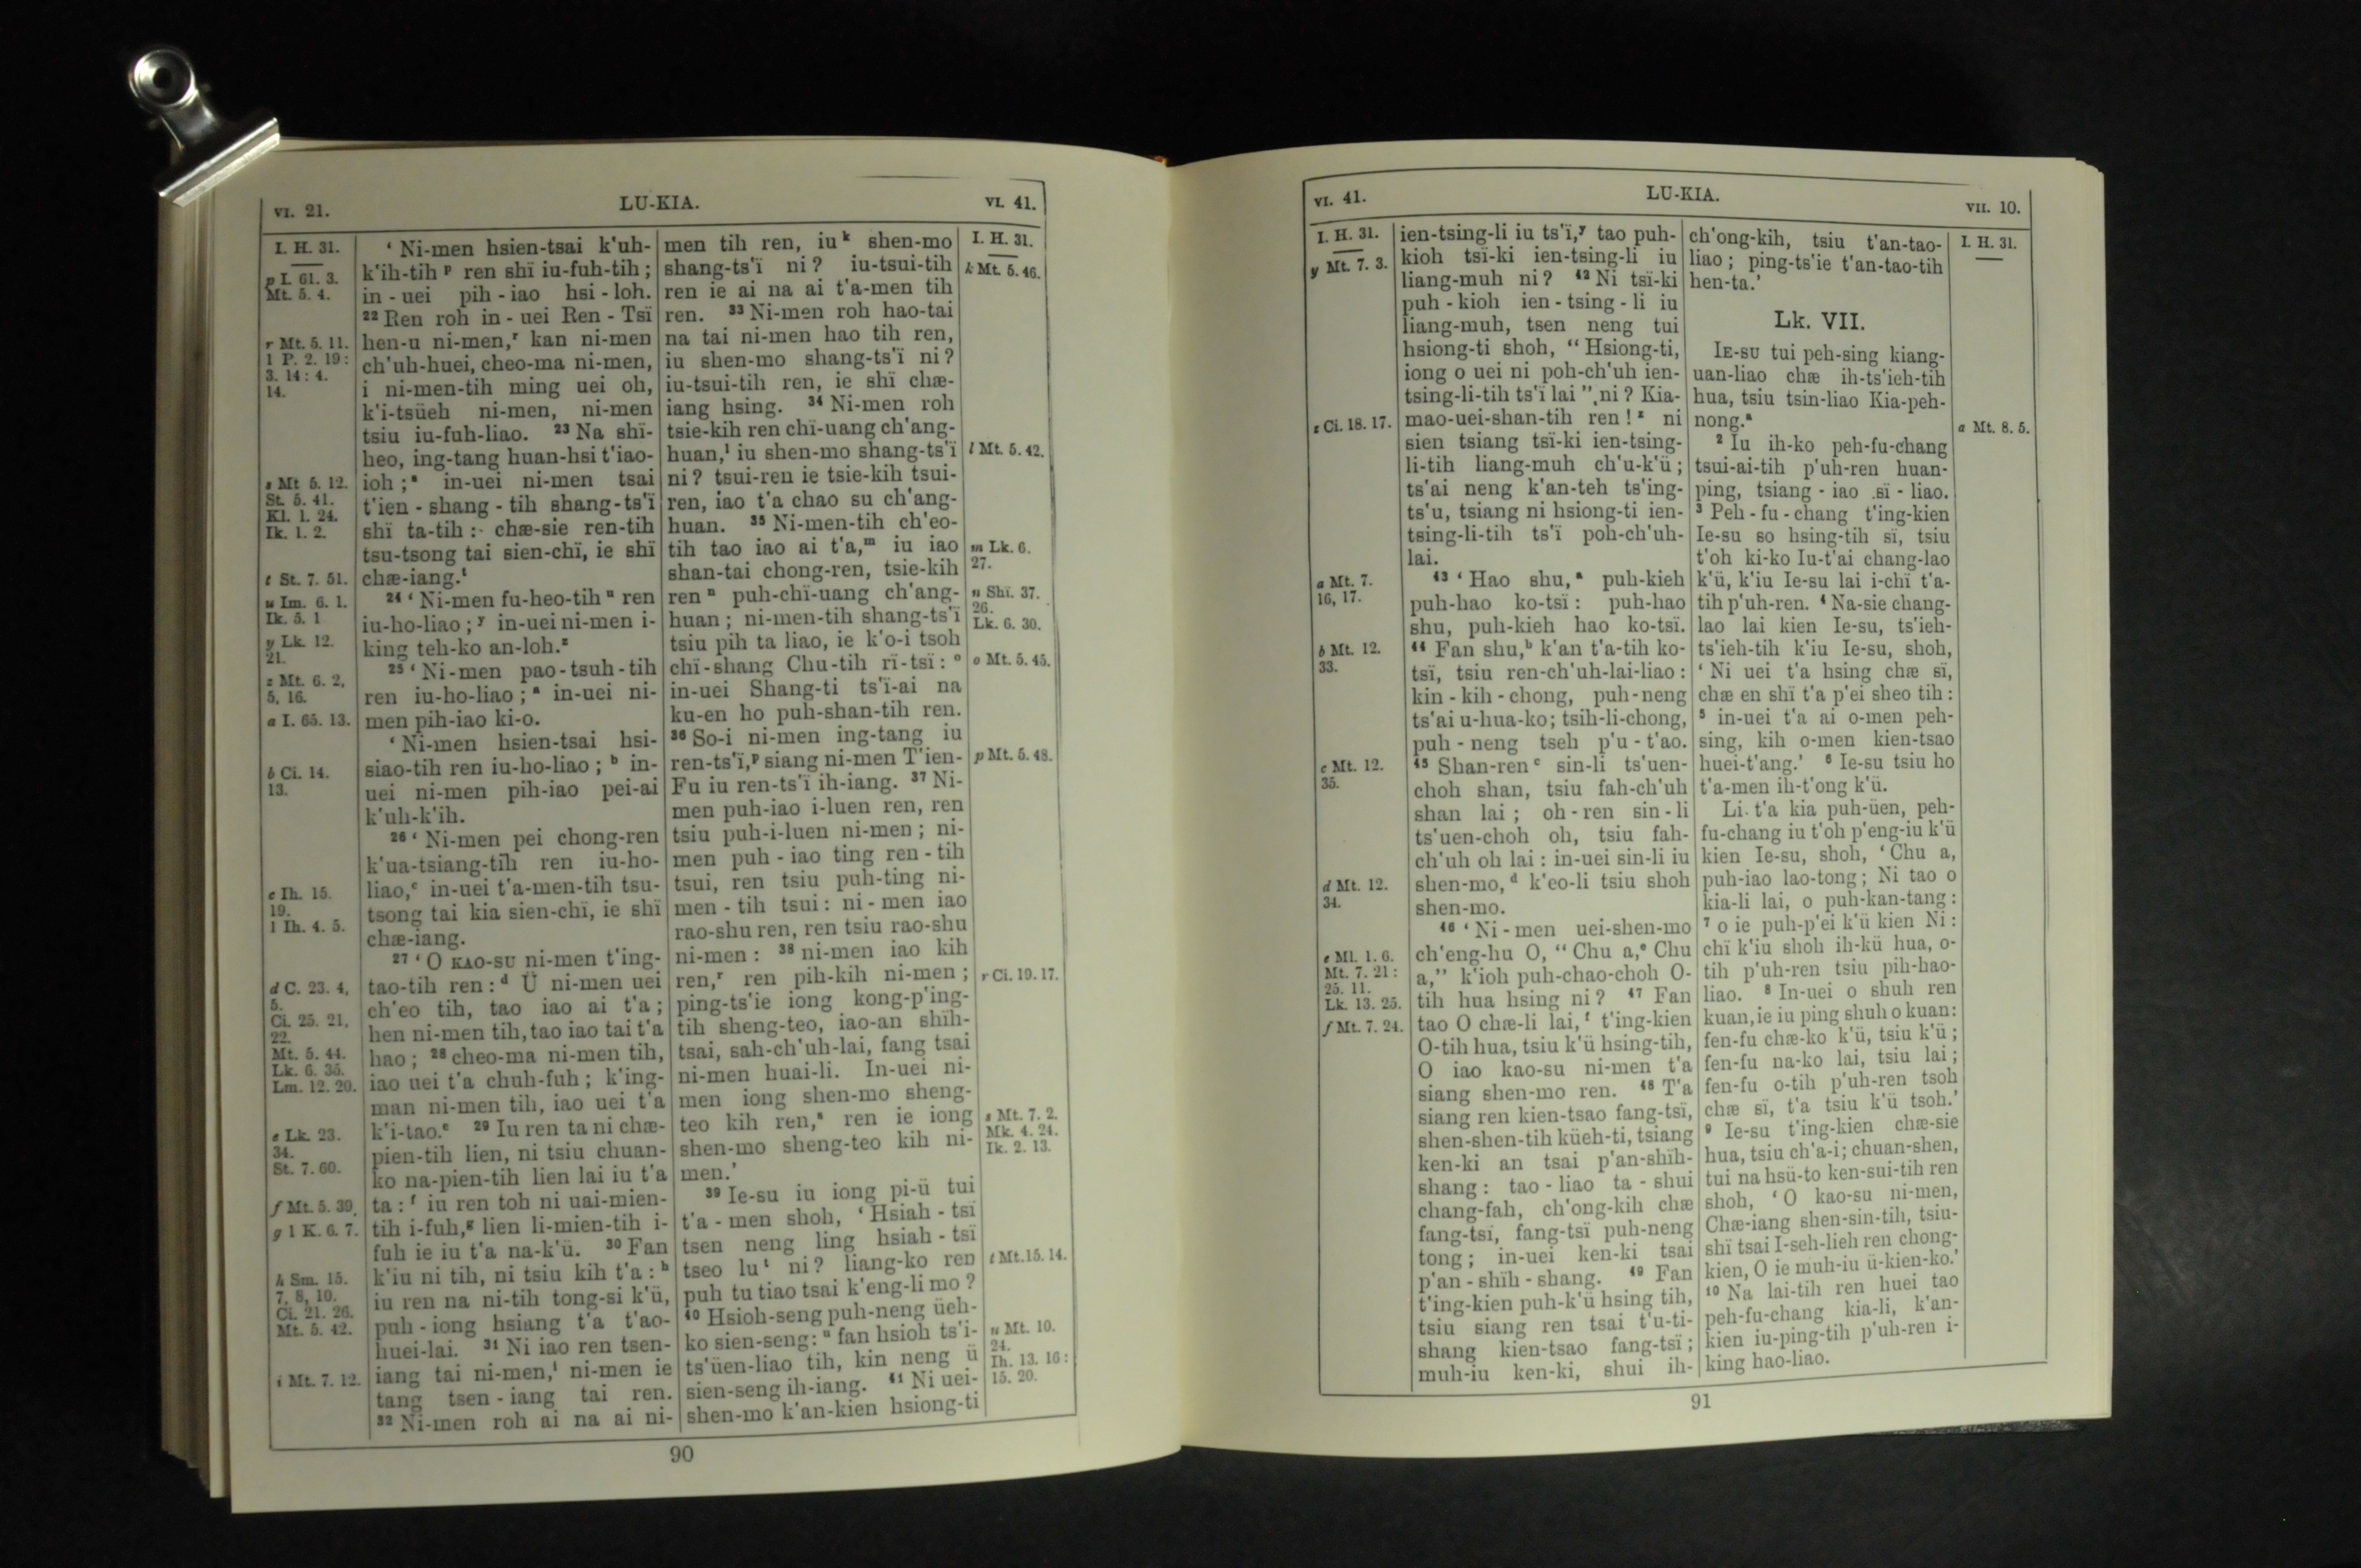 VI. 21.
LU-KIA.
VI. 41.
I. H. 31.
p I. 61. 3.
Mt. 5. 4.
r Mt. 5. 11.
1 P. 2. 19:
3. 14: 4.
14.
s Mt 5. 12.
St. 5. 41.
Kl. 1. 24.
Ik. 1. 2.
t St. 7. 51.
u Im. 6. 1.
Ik. 5. 1
y Lk. 12.
21.
z Mt. 6. 2,
5, 16.
a I. 65. 13.
b Ci. 14.
13.
c Ih. 15.
19.
1 Ih. 4. 5.
d C. 23. 4,
5.
Ci. 25. 21,
22.
Mt. 5. 44.
Lk. 6. 35.
Lm. 12. 20.
e Lk. 23.
34.
St. 7. 60.
f Mt. 5. 39.
g 1 K. 6. 7.
h Sm. 15.
7, 8, 10.
Ci. 21. 26.
Mt. 5. 42.
i Mt. 7. 12.
‘ Ni-men hsien-tsai k‘uh-
k‘ih-tih p ren shï iu-fuh-tih ;
in - uei pih - iao hsi - loh.
22 Ren roh in - uei Ren - Tsï
hen-u ni-men, r kan ni-men
ch‘uh-huei, cheo-ma ni-men,
i ni-men-tih ming uei oh,
k‘i-tsüeh ni-men, ni-men
tsiu iu-fuh-liao. 23 Na shï-
heo, ing-tang huan-hsi t‘iao-
ioh ; s in-uei ni-men tsai
t‘ien - shang - tih shang-ts‘ï
shï ta-tih : chæ-sie ren-tih
tsu-tsong tai sien-chï, ie shï
chæ-iang. t
24 ‘ Ni-men fu-heo-tih u ren
iu-ho-liao ; y in-uei ni-men i-
king teh-ko an-loh. z
25 ‘ Ni-men pao-tsuh-tih
ren iu-ho-liao ; a in-uei ni-
men pih-iao ki-o.
‘ Ni-men hsien-tsai hsi-
siao-tih ren iu-ho-liao ; b in-
uei ni-men pih-iao pei-ai
k‘uh-k‘ih.
26 ‘ Ni-men pei chong-ren
k‘ua-tsiang-tih ren iu-ho-
liao, c in-uei t‘a-men-tih tsu-
tsong tai kia sien-chï, ie shï
chæ-iang.
27 ‘ O KAO-SU ni-men t‘ing-
tao-tih ren : d Ü ni-men uei
ch‘eo tih, tao iao ai t‘a ;
hen ni-men tih, tao iao tai t‘a
hao ; 28 cheo-ma ni-men tih,
iao uei t‘a chuh-fuh ; k‘ing-
man ni-men tih, iao uei t‘a
k‘i-tao. e 29 Iu ren ta ni chæ-
pien-tih lien, ni tsiu chuan-
ko na-pien-tih lien lai iu t‘a
ta : f iu ren toh ni uai-mien-
tih i-fuh, g lien li-mien-tih i-
fuh ie iu t‘a na-k‘ü. 30 Fan
k‘iu ni tih, ni tsiu kih t‘a : h
iu ren na ni-tih tong-si k‘ü,
puh - iong hsiang t‘a t‘ao-
huei-lai. 31 Ni iao ren tsen-
iang tai ni-men, i ni-men ie
tang tsen - iang tai ren.
32 Ni-men roh ai na ai ni-
men tih ren, iu k shen-mo
shang-ts‘ï ni ? iu-tsui-tih
ren ie ai na ai t‘a-men tih
ren. 33 Ni-men roh hao-tai
na tai ni-men hao tih ren,
iu shen-mo shang-ts‘ï ni ?
iu-tsui-tih ren, ie shï chæ-
iang hsing. 34 Ni-men roh
tsie-kih ren chï-uang ch‘ang-
huan, l iu shen-mo shang-ts‘ï
ni ? tsui-ren ie tsie-kih tsui-
ren, iao t‘a chao su ch‘ang-
huan. 35 Ni-men-tih ch‘eo-
tih tao iao ai t‘a, m iu iao
shan-tai chong-ren, tsie-kih
ren n puh-chï-uang ch‘ang-
huan ; ni-men-tih shang-ts‘ï
tsiu pih ta liao, ie k‘o-i tsoh
chï-shang Chu-tih rï-tsï : o
in-uei Shang-ti ts‘ï-ai na
ku-en ho puh-shan-tih ren.
36 So-i ni-men ing-tang iu
ren-ts‘ï, p siang ni-men T‘ien-
Fu iu ren-ts‘ï ih-iang. 37 Ni-
men puh-iao i-luen ren, ren
tsiu puh-i-luen ni-men ; ni-
men puh - iao ting ren - tih
tsui, ren tsiu puh-ting ni-
men - tih tsui : ni - men iao
rao-shu ren, ren tsiu rao-shu
ni-men : 38 ni-men iao kih
ren, r ren pih-kih ni-men ;
ping-ts‘ie iong kong-p‘ing-
tih sheng-teo, iao-an shïh-
tsai, sah-ch‘uh-lai, fang tsai
ni-men huai-li. In-uei ni-
men iong shen-mo sheng-
teo kih ren, s ren ie iong
shen-mo sheng-teo kih ni-
men.’
39 Ie-su iu iong pi-ü tui
t‘a - men shoh, ‘ Hsiah - tsï
tsen neng ling hsiah - tsï
tseo lu t ni ? liang-ko ren
puh tu tiao tsai k‘eng-li mo ?
40 Hsioh-seng puh-neng üeh-
ko sien-seng : u fan hsioh ts‘i-
ts‘üen-liao tih, kin neng ü
sien-seng ih-iang. 41 Ni uei-
shen-mo k‘an-kien hsiong-ti
I. H. 31.
k Mt. 5. 46.
l Mt. 5. 42.
m Lk. 6.
27.
n Shï. 37.
26.
Lk. 6. 30.
o Mt. 5. 45.
p Mt. 5. 48.
r Ci. 19. 17.
s Mt. 7. 2.
Mk. 4. 24.
Ik. 2. 13.
t Mt. 15. 14.
u Mt. 10.
24.
Ih. 13. 16:
15. 20.
90
VI. 41.
LU-KIA.
VII. 10.
I. H. 31.
y Mt. 7. 3.
z Ci. 18. 17.
a Mt. 7.
16, 17.
b Mt. 12.
33.
c Mt. 12.
35.
d Mt. 12.
34.
e Ml. 1. 6.
Mt. 7. 21:
25. 11.
Lk. 13. 25.
f Mt. 7. 24.
ien-tsing-li iu ts‘ï, y tao puh-
kioh tsï-ki ien-tsing-li iu
liang-muh ni ? 42 Ni tsï-ki
puh - kioh ien - tsing - li iu
liang-muh, tsen neng tui
hsiong-ti shoh, “ Hsiong-ti,
iong o uei ni poh-ch‘uh ien-
tsing-li-tih ts‘ï lai ” ni ? Kia-
mao-uei-shan-tih ren ! z ni
sien tsiang tsï-ki ien-tsing-
li-tih liang-muh ch‘u-k‘ü ;
ts‘ai neng k‘an-teh ts‘ing-
ts‘u, tsiang ni hsiong-ti ien-
tsing-li-tih ts‘ï poh-ch‘uh-
lai.
43 ‘ Hao shu, a puh-kieh
puh-hao ko-tsï : puh-hao
shu, puh-kieh hao ko-tsï.
44 Fan shu, b k‘an t‘a-tih ko-
tsï, tsiu ren-ch‘uh-lai-liao :
kin - kih - chong, puh-neng
ts‘ai u-hua-ko ; tsih-li-chong,
puh - neng tseh p‘u - t‘ao.
45 Shan-ren c sin-li ts‘uen-
choh shan, tsiu fah-ch‘uh
shan lai ; oh-ren sin-li
ts‘uen-choh oh, tsiu fah-
ch‘uh oh lai : in-uei sin-li iu
shen-mo, d k‘eo-li tsiu shoh
shen-mo.
46 ‘ Ni - men uei-shen-mo
ch‘eng-hu O, “ Chu a, e Chu
a,” k‘ioh puh-chao-choh O-
tih hua hsing ni ? 47 Fan
tao O chæ-li lai, f t‘ing-kien
O-tih hua, tsiu k‘ü hsing-tih,
O iao kao-su ni-men t‘a
siang shen-mo ren. 48 T‘a
siang ren kien-tsao fang-tsï,
shen-shen-tih küeh-ti, tsiang
ken-ki an tsai p‘an-shïh-
shang : tao - liao ta - shui
chang-fah, ch‘ong-kih chæ
fang-tsï, fang-tsï puh-neng
tong ; in-uei ken-ki tsai
p‘an - shïh - shang. 49 Fan
t‘ing-kien puh-k‘ü hsing tih,
tsiu siang ren tsai t‘u-ti-
shang kien-tsao fang-tsï ;
muh-iu ken-ki, shui ih-
ch‘ong-kih, tsiu t‘an-tao-
liao ; ping-ts‘ie t‘an-tao-tih
hen-ta.’
Lk. VII.
IE-SU tui peh-sing kiang-
uan-liao chæ ih-ts‘ieh-tih
hua, tsiu tsin-liao Kia-peh-
nong. a
2 Iu ih-ko peh-fu-chang
tsui-ai-tih p‘uh-ren huan-
ping, tsiang - iao sï - liao.
3 Peh - fu - chang t‘ing-kien
Ie-su so hsing-tih sï, tsiu
t‘oh ki-ko Iu-t‘ai chang-lao
k‘ü, k‘iu Ie-su lai i-chï t‘a-
tih p‘uh-ren. 4 Na-sie chang-
lao lai kien Ie-su, ts‘ieh-
ts‘ieh-tih k‘iu Ie-su, shoh,
‘ Ni uei t‘a hsing chæ sï,
chæ en shï t‘a p‘ei sheo tih :
5 in-uei t‘a ai o-men peh-
sing, kih o-men kien-tsao
huei-t‘ang.’ 6 Ie-su tsiu ho
t‘a-men ih-t‘ong k‘ü.
Li t‘a kia puh-üen, peh-
fu-chang iu t‘oh p‘eng-iu k‘ü
kien Ie-su, shoh, ‘ Chu a,
puh-iao lao-tong ; Ni tao o
kia-li lai, o puh-kan-tang :
7 o ie puh-p‘ei k‘ü kien Ni :
chï k‘iu shoh ih-kü hua, o-
tih p‘uh-ren tsiu pih-hao-
liao. 8 In-uei o shuh ren
kuan, ie iu ping shuh o kuan :
fen-fu chæ-ko k‘ü, tsiu k‘ü ;
fen-fu na-ko lai, tsiu lai ;
fen-fu o-tih p‘uh-ren tsoh
chæ sï, t‘a tsiu k‘ü tsoh.’
9 Ie-su t‘ing-kien chæ-sie
hua, tsiu ch‘a-i ; chuan-shen,
tui na hsü-to ken-sui-tih ren
shoh, ‘ O kao-su ni-men,
Chæ-iang shen-sin-tih, tsiu-
shï tsai I-seh-lieh ren chong-
kien, O ie muh-iu ü-kien-ko.’
10 Na lai-tih ren huei tao
peh-fu-chang kia-li, k‘an-
kien iu-ping-tih p‘uh-ren i-
king hao-liao.
I. H. 31.
a Mt. 8. 5.
91